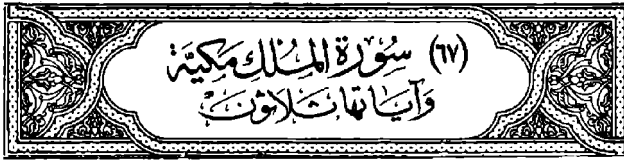 (٦٧) سُورَة المُلك مَكيَّة
وَآيَاتهَا ثَلاثُونَ